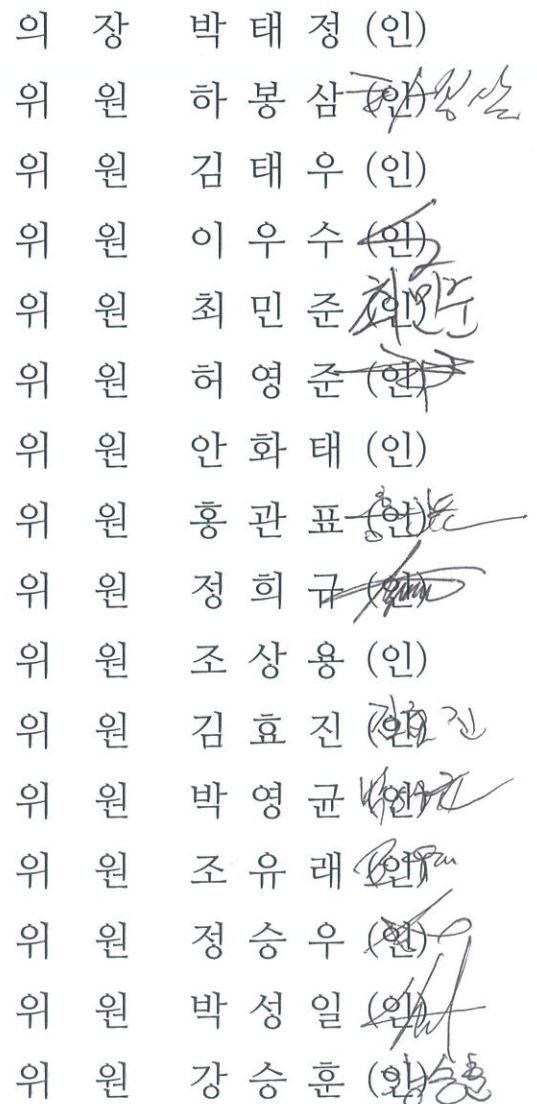 의 장 박 태 정 (인)
위 원 하 봉 삼 (인) 하봉삼
위 원 김 태 우 (인)
위 원 이 우 수 (인)
위 원 최 민 준 (인) 최민준
위 원 허 영 준 (인)
위 원 안 화 태 (인)
위 원 홍 관 표 (인)
위 원 정 희 규 (인)
위 원 조 상 용 (인)
위 원 김 효 진 (인) 김효진
위 원 박 영 균 (인)
위 원 조 유 래 (인)
위 원 정 승 우 (인)
위 원 박 성 일 (인)
위 원 강 승 훈 (인) 강승훈